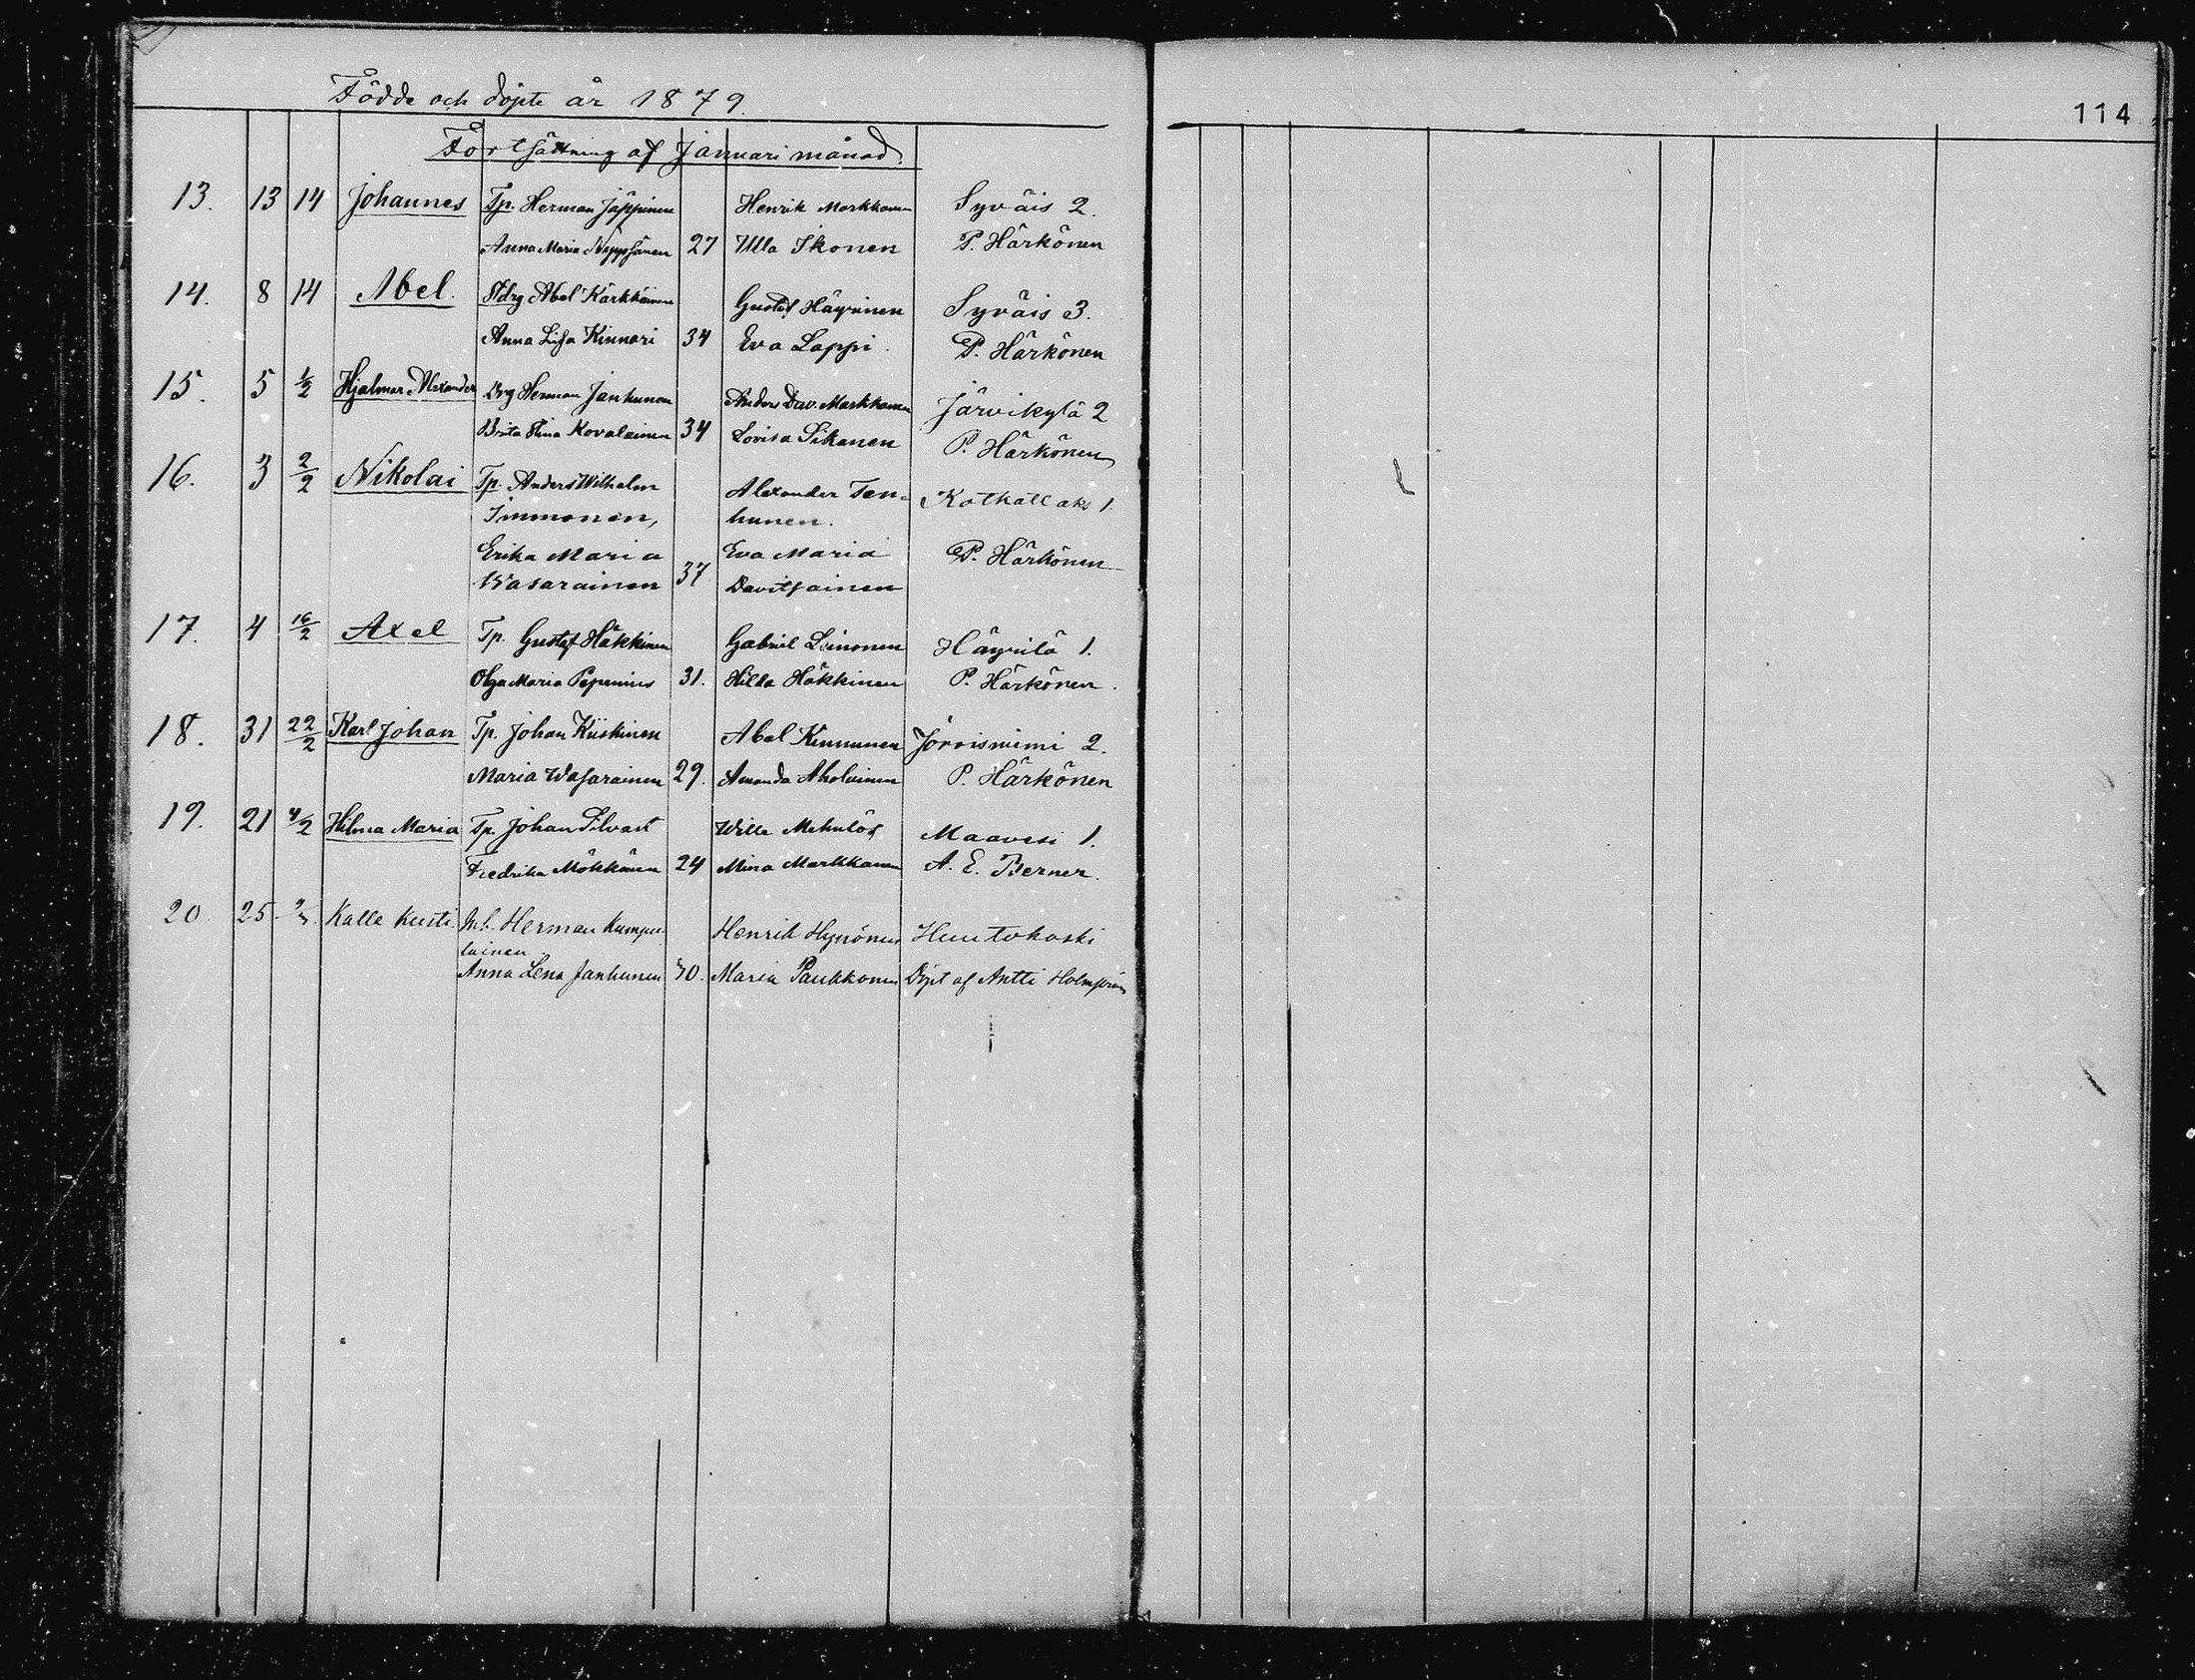 Födde och döpte år 1879.
114
Fortsättning af Januari månad.
13. 13 14 Johannes Tp. Herman Jäppinen Henrik Markkanen Syväis 2.
Anna Maria 27 Ulla Ikonen P. Härkönen
14. 8 14 Abel. Abel Kärkkäinen Gustaf Häyrinen Syväis 3.
Anna Lisa Kinnari 34 Eva Lappi. P. Härkönen
15. 5 1/2 Hjalmar Alexander Drg Herman Janhunen Anders Dav. Markkanen Järvikylä 2
Brita Stina Kovalainen 34 Lovisa Sikanen P. Härkönen
16. 3 2/2 Nikolai Tp. Anders Wilhelm Alexander Ten- Kotkatlaks 1.
Immonen, hunen.
Erika Maria Eva Maria P. Härkönen
Wasarainen 37 Davitsainen
17. 4 16/2 Axel Tp. Gustaf Häkkinen Gabriel Leinonen Häyrilä 1.
Olga Maria Pepenius 31. Hilda Häkkinen P. Härkönen.
18. 31 22/2 Karl Johan Tp. Johan Kiiskinen Abel Kinnunen Joroisniemi 2.
Maria Wasarainen 29. Amanda Aholainen P. Härkönen
19. 21 4/2 Hilma Maria Tp. Johan Silvast Wille Maavesi 1.
Fredrika Mökkönen 24 Mina Markkanen A. E. Berner.
20. 25 Kalle Kusti. Herman Kumpu- Henrik Hynönen Huutokoski
lainen
Anna Lena Janhunen 40. Maria Paukkonen Döpt af Antti